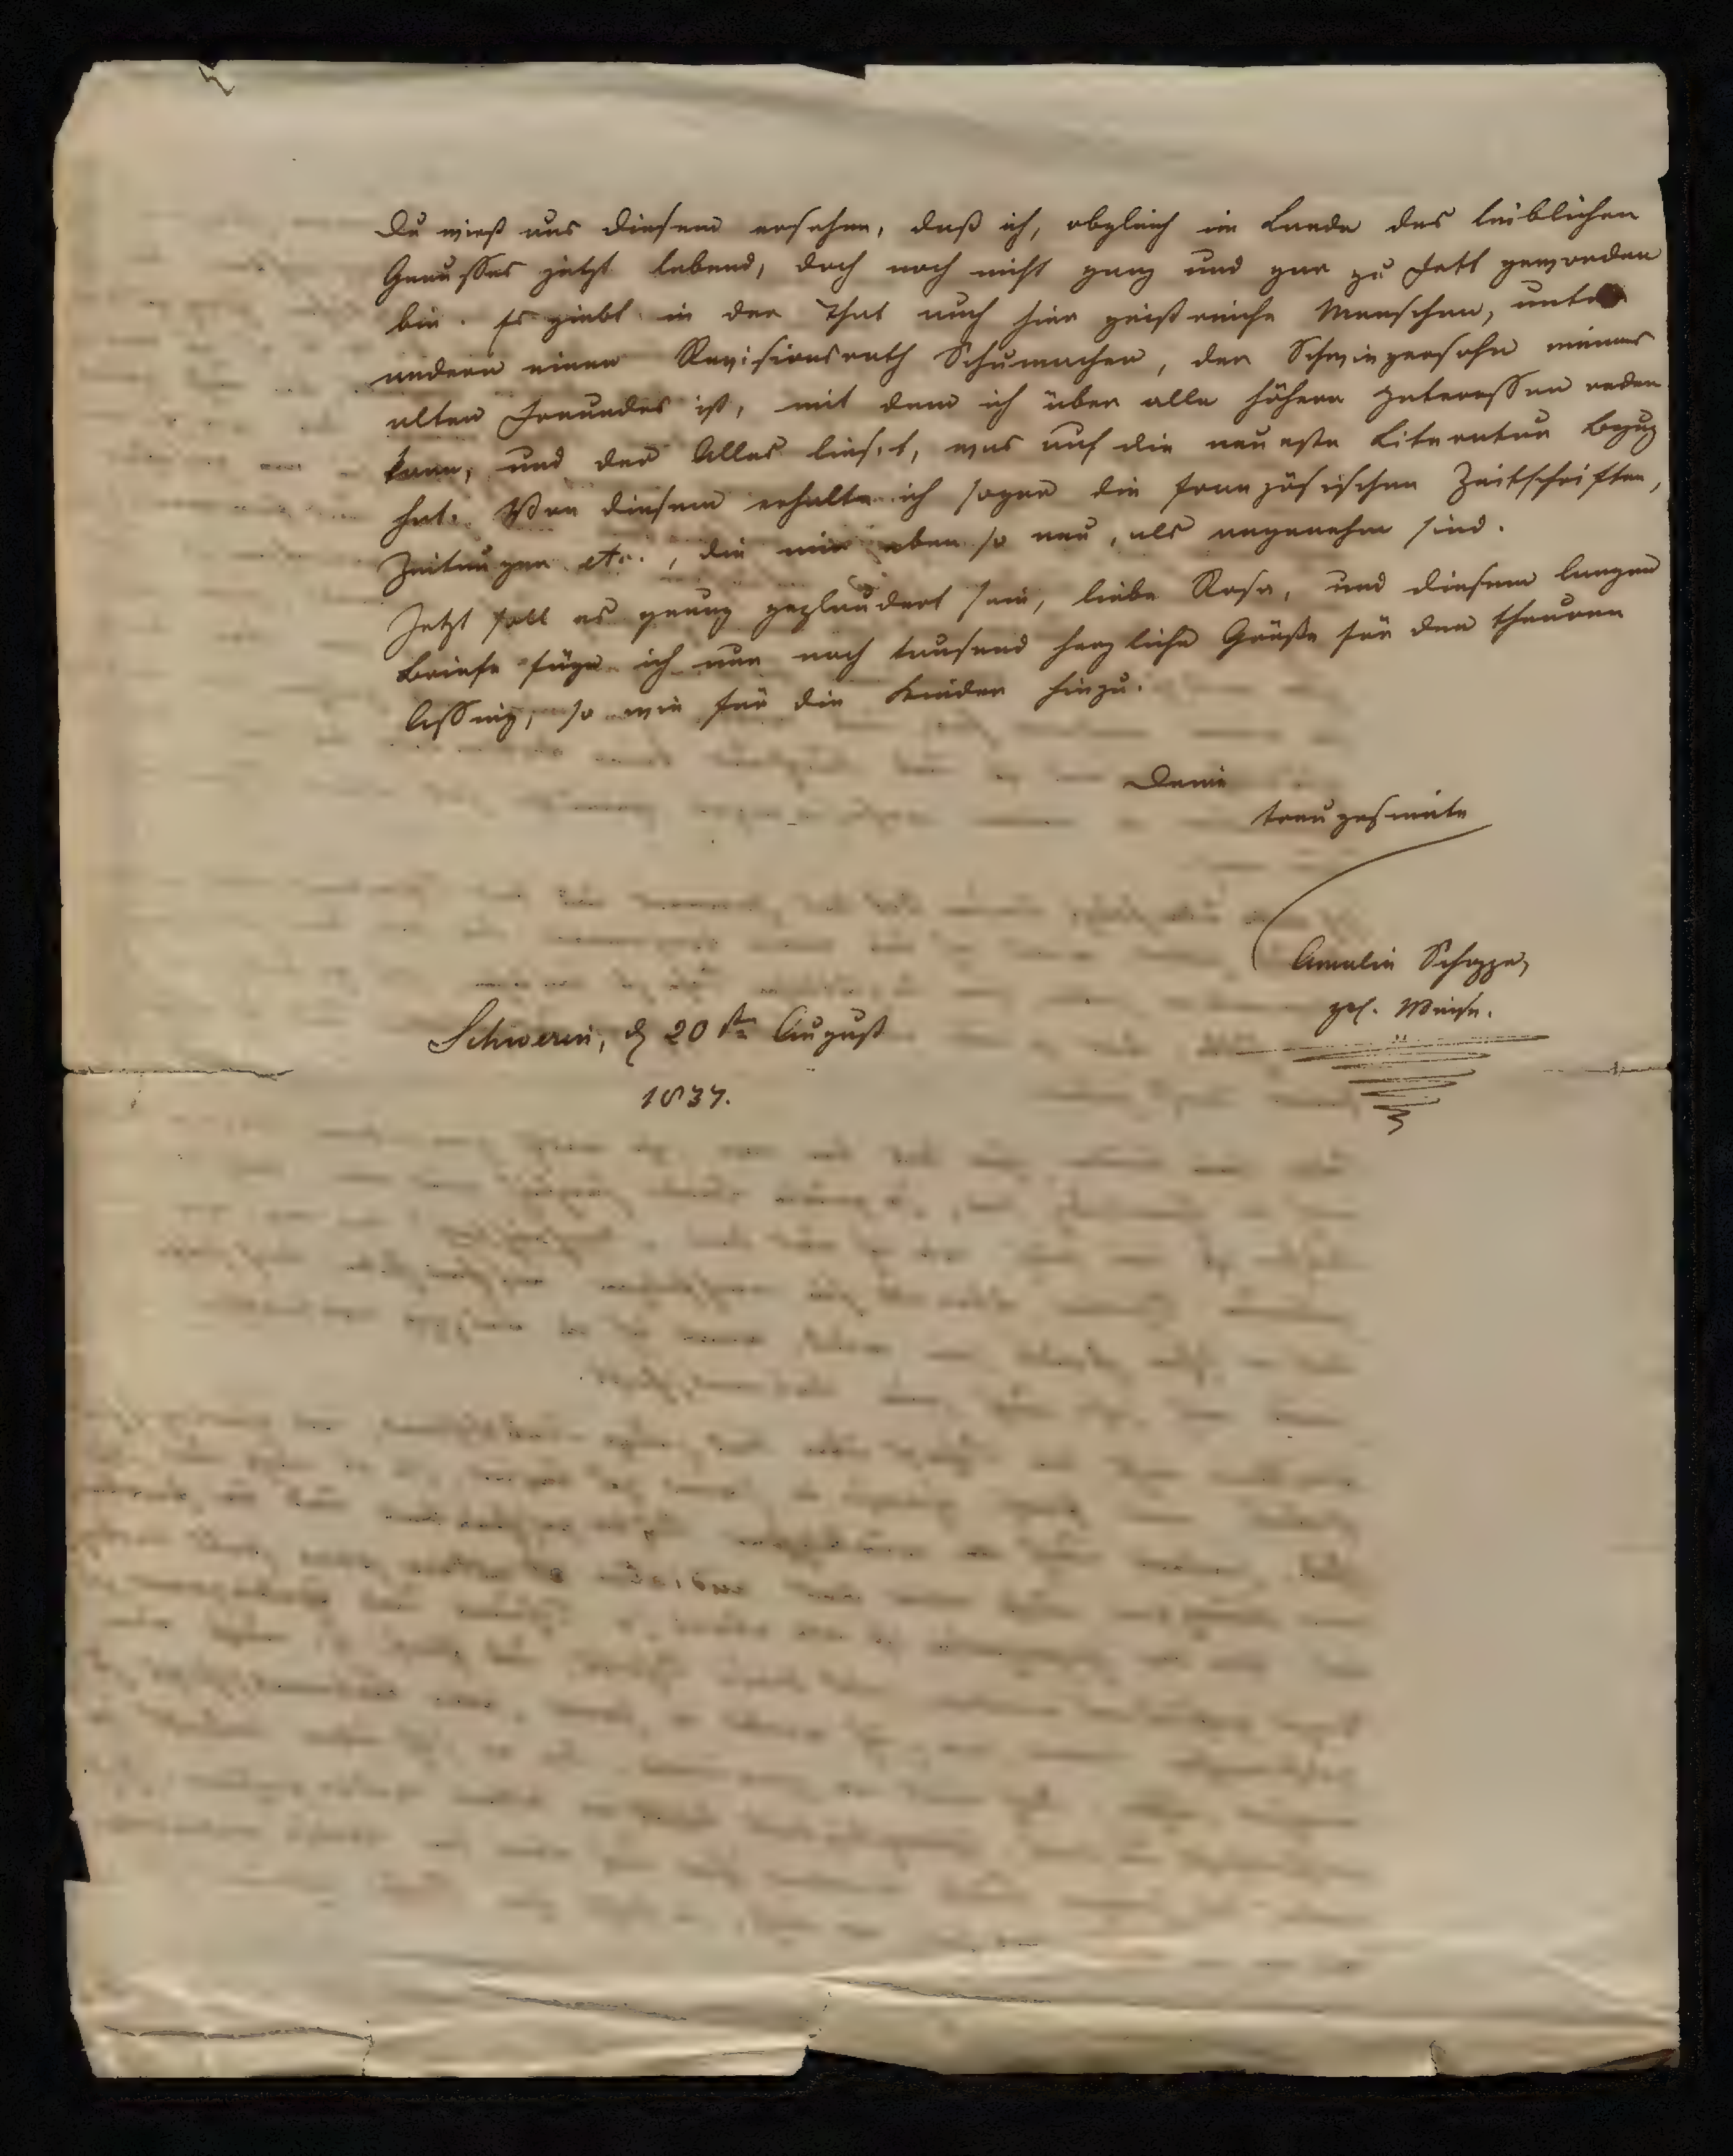 Du wirst aus diesem ersehen, daß ich, obgleich im Lande des leiblichen
Genusses jetzt lebend, doch noch nicht ganz und gar zu Fett geworden
bin. Es giebt in der That auch hier geistreiche Menschen, unter
andern einen Revisionsrath Schumacher, der Schwiegersohn meines
alten Freundes ist, mit dem ich über alle höhern Interessen reden
kann, und der Alles lies't, was auf die neueste Literatur Bezug
hat. Von diesem erhalte ich sogar die französischen Zeitschriften,
Zeitungen etc., die mir eben so neu, als angenehm sind.
Jetzt soll es genug geplaudert sein, liebe Rosa, und diesem langen
Briefe füge ich nur noch tausend herzliche Grüße für den theuren
Assing, so wie für die Kinder hinzu.
Deine
treugesinnte
Amalie Schoppe,
geb. Weise.
Schwerin, d 20sten August
1837.